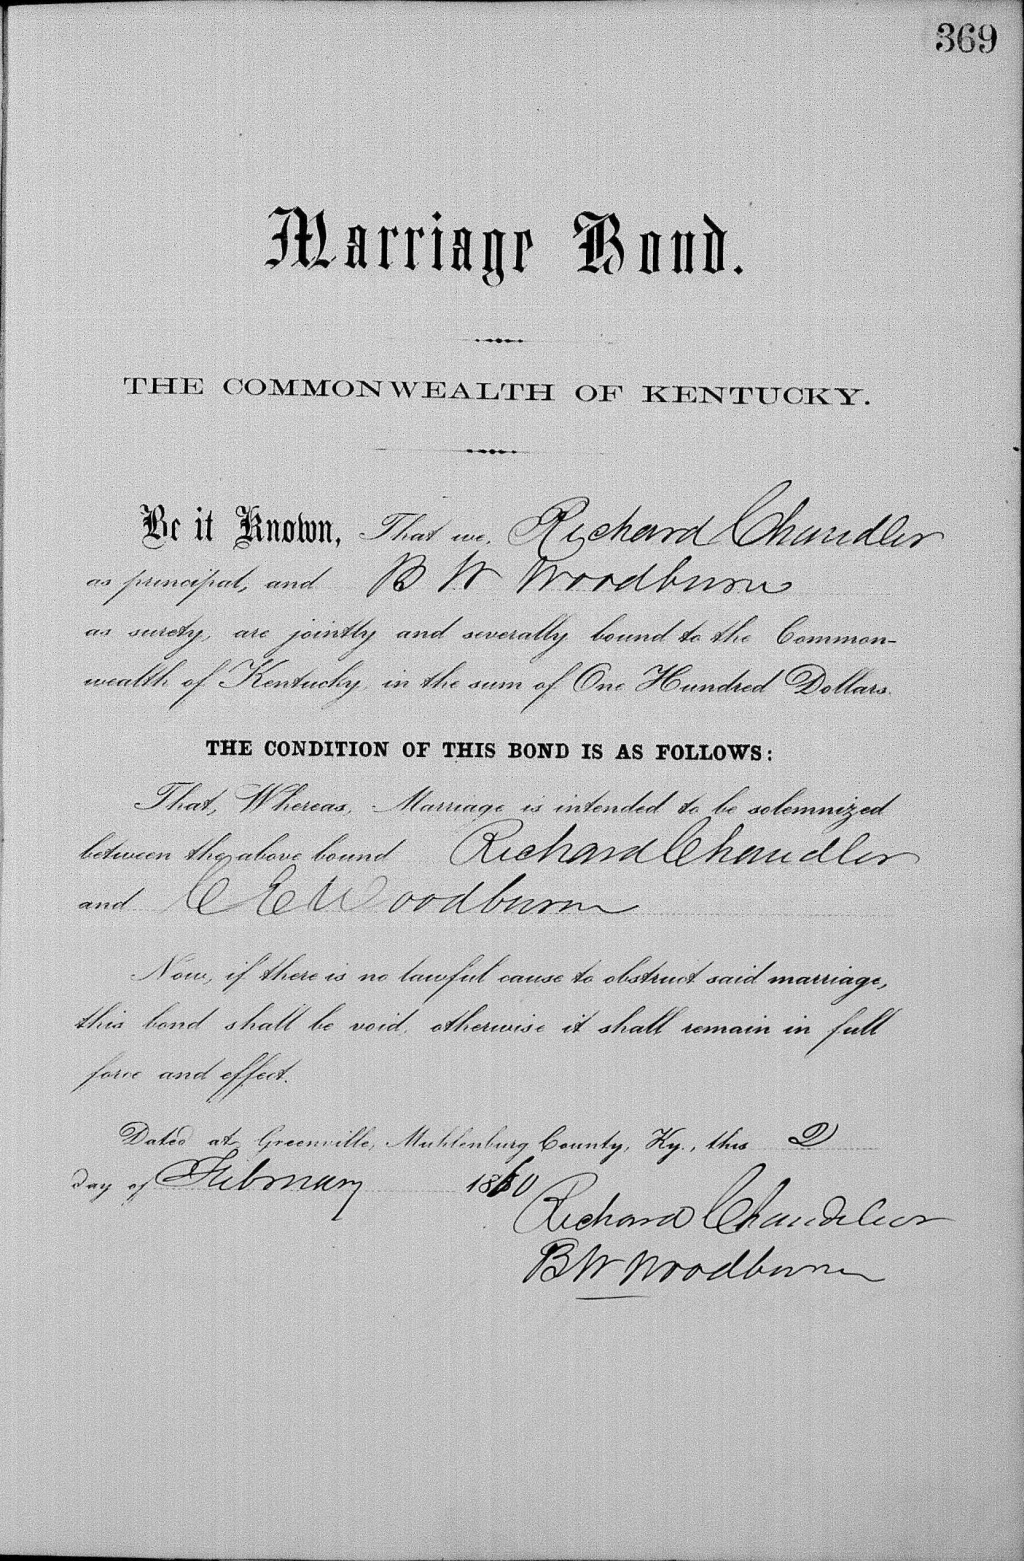 369
Marriage Bond.
THE COMMONWEALTH OF KENTUCKY.
Be it Known, That we, Richard Chandler
as principal, and B W Woodburn
as surety, are jointly and severally bound to the Common-
wealth of Kentucky, in the sum of One Hundred Dollars.
THE CONDITION OF THIS BOND IS AS FOLLOWS:
That, Whereas, Marriage is intended to be solemnized
between the above bound Richard Chandler
and C E Woodburn
Now, if there is no lawful cause to obstruct said marriage,
this bond shall be void, otherwise it shall remain in full
force and effect.
Dated at Greenville, Muhlenburg County, Ky., this 2
day of February 1860
Richard Chandler
B W Woodburn